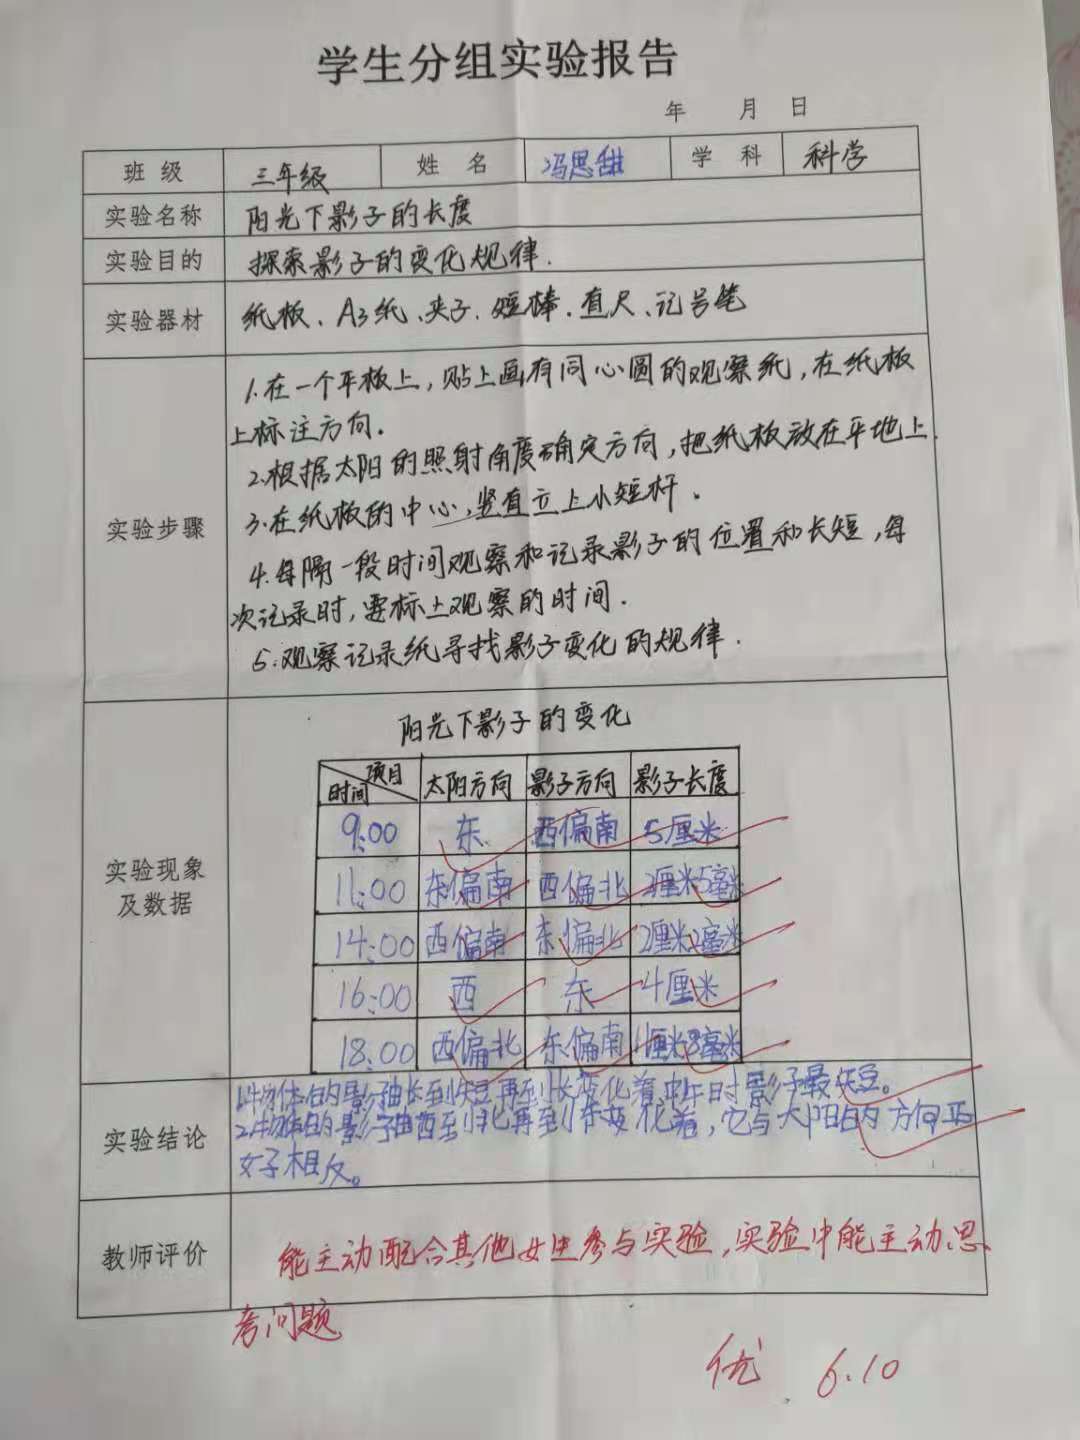 学生分组实验报告
年 月 日
班 级 三年级 姓 名 冯思甜 学 科 科学
实验名称 阳光下影子的长度
实验目的 探索影子的变化规律.
实验器材 纸板、A3纸、夹子、短棒、直尺、记号笔
1.在一个平板上,贴上画有同心圆的观察纸,在纸板
上标注方向.
2.根据太阳的照射角度确定方向,把纸板放在平地上.
实验步骤
3.在纸板的中心,竖直立上小短杆.
4.每隔一段时间观察和记录影子的位置和长短,每
次记录时,要标上观察的时间.
5.观察记录纸寻找影子变化的规律.
阳光下影子的变化
项目 时间 太阳方向 影子方向 影子长度
9:00 东 西偏南 5厘米
实验现象
及数据
11:00 东偏南 西偏北 厘米5毫米
14:00 西偏南 东偏北 2厘米2毫米
16:00 西 东 4厘米
18:00 西偏北 东偏南 厘米8毫米
实验结论
1.物体的影子由长到短再到长变化着,中午时影子最短。
2.物体的影子由西到北再到东变化着,它与太阳的方向正
好相反。
教师评价
能主动配合其他女生参与实验,实验中能主动思
考问题
优 6.10